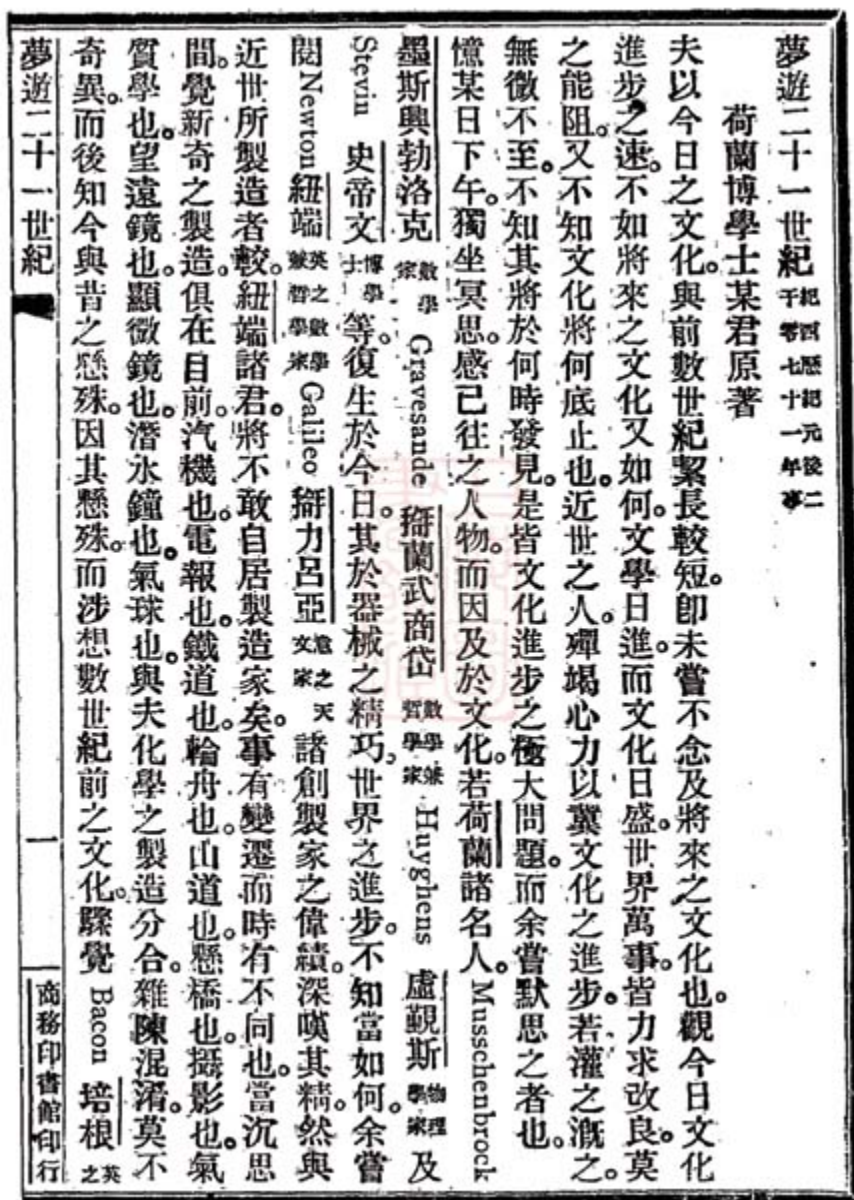 夢遊二十一世紀 紀西曆紀元後二千零七十一年事
荷蘭博學士某君原著
夫以今日之文化。與前數世紀絜長較短。卽未嘗不念及將來之文化也。觀今日文化
進步之速。不如將來之文化又如何。文學日進。而文化日盛。世界萬事。皆力求改良。莫
之能阻。又不知文化將何底止也。近世之人。殫竭心力以冀文化之進步。若灌之漑之。
無微不至。不知其將於何時發見。是皆文化進步之極大問題。而余嘗默思之者也。
憶某日下午。獨坐冥思。感已往之人物。而因及於文化。若荷蘭諸名人。Musschenbrock
墨斯興勃洛克 數學家 Gravesande 搿蘭武商岱 數學兼哲學家 Huyghens 虛覲斯 物理學家 及
Stevin 史帝文 博學士 等。復生於今日。其於器械之精巧。世界之進步。不知當如何。余嘗
閱 Newton 紐端 英之數學兼哲學家 Galileo 搿力呂亞 意之天文家 諸創製家之偉績。深嘆其精。然與
近世所製造者較。紐端諸君。將不敢自居製造家矣。事有變遷。而時有不同也。當沉思
間。覺新奇之製造。俱在目前。汽機也。電報也。鐵道也。輪舟也。山道也。懸橋也。攝影也。氣
質學也。望遠鏡也。顯微鏡也。潛水鐘也。氣球也。與夫化學之製造分合。雜陳混淆。莫不
奇異。而後知今與昔之懸殊。因其懸殊。而涉想數世紀前之文化。驟覺 Bacon 培根 英之
夢遊二十一世紀
一
商務印書館印行